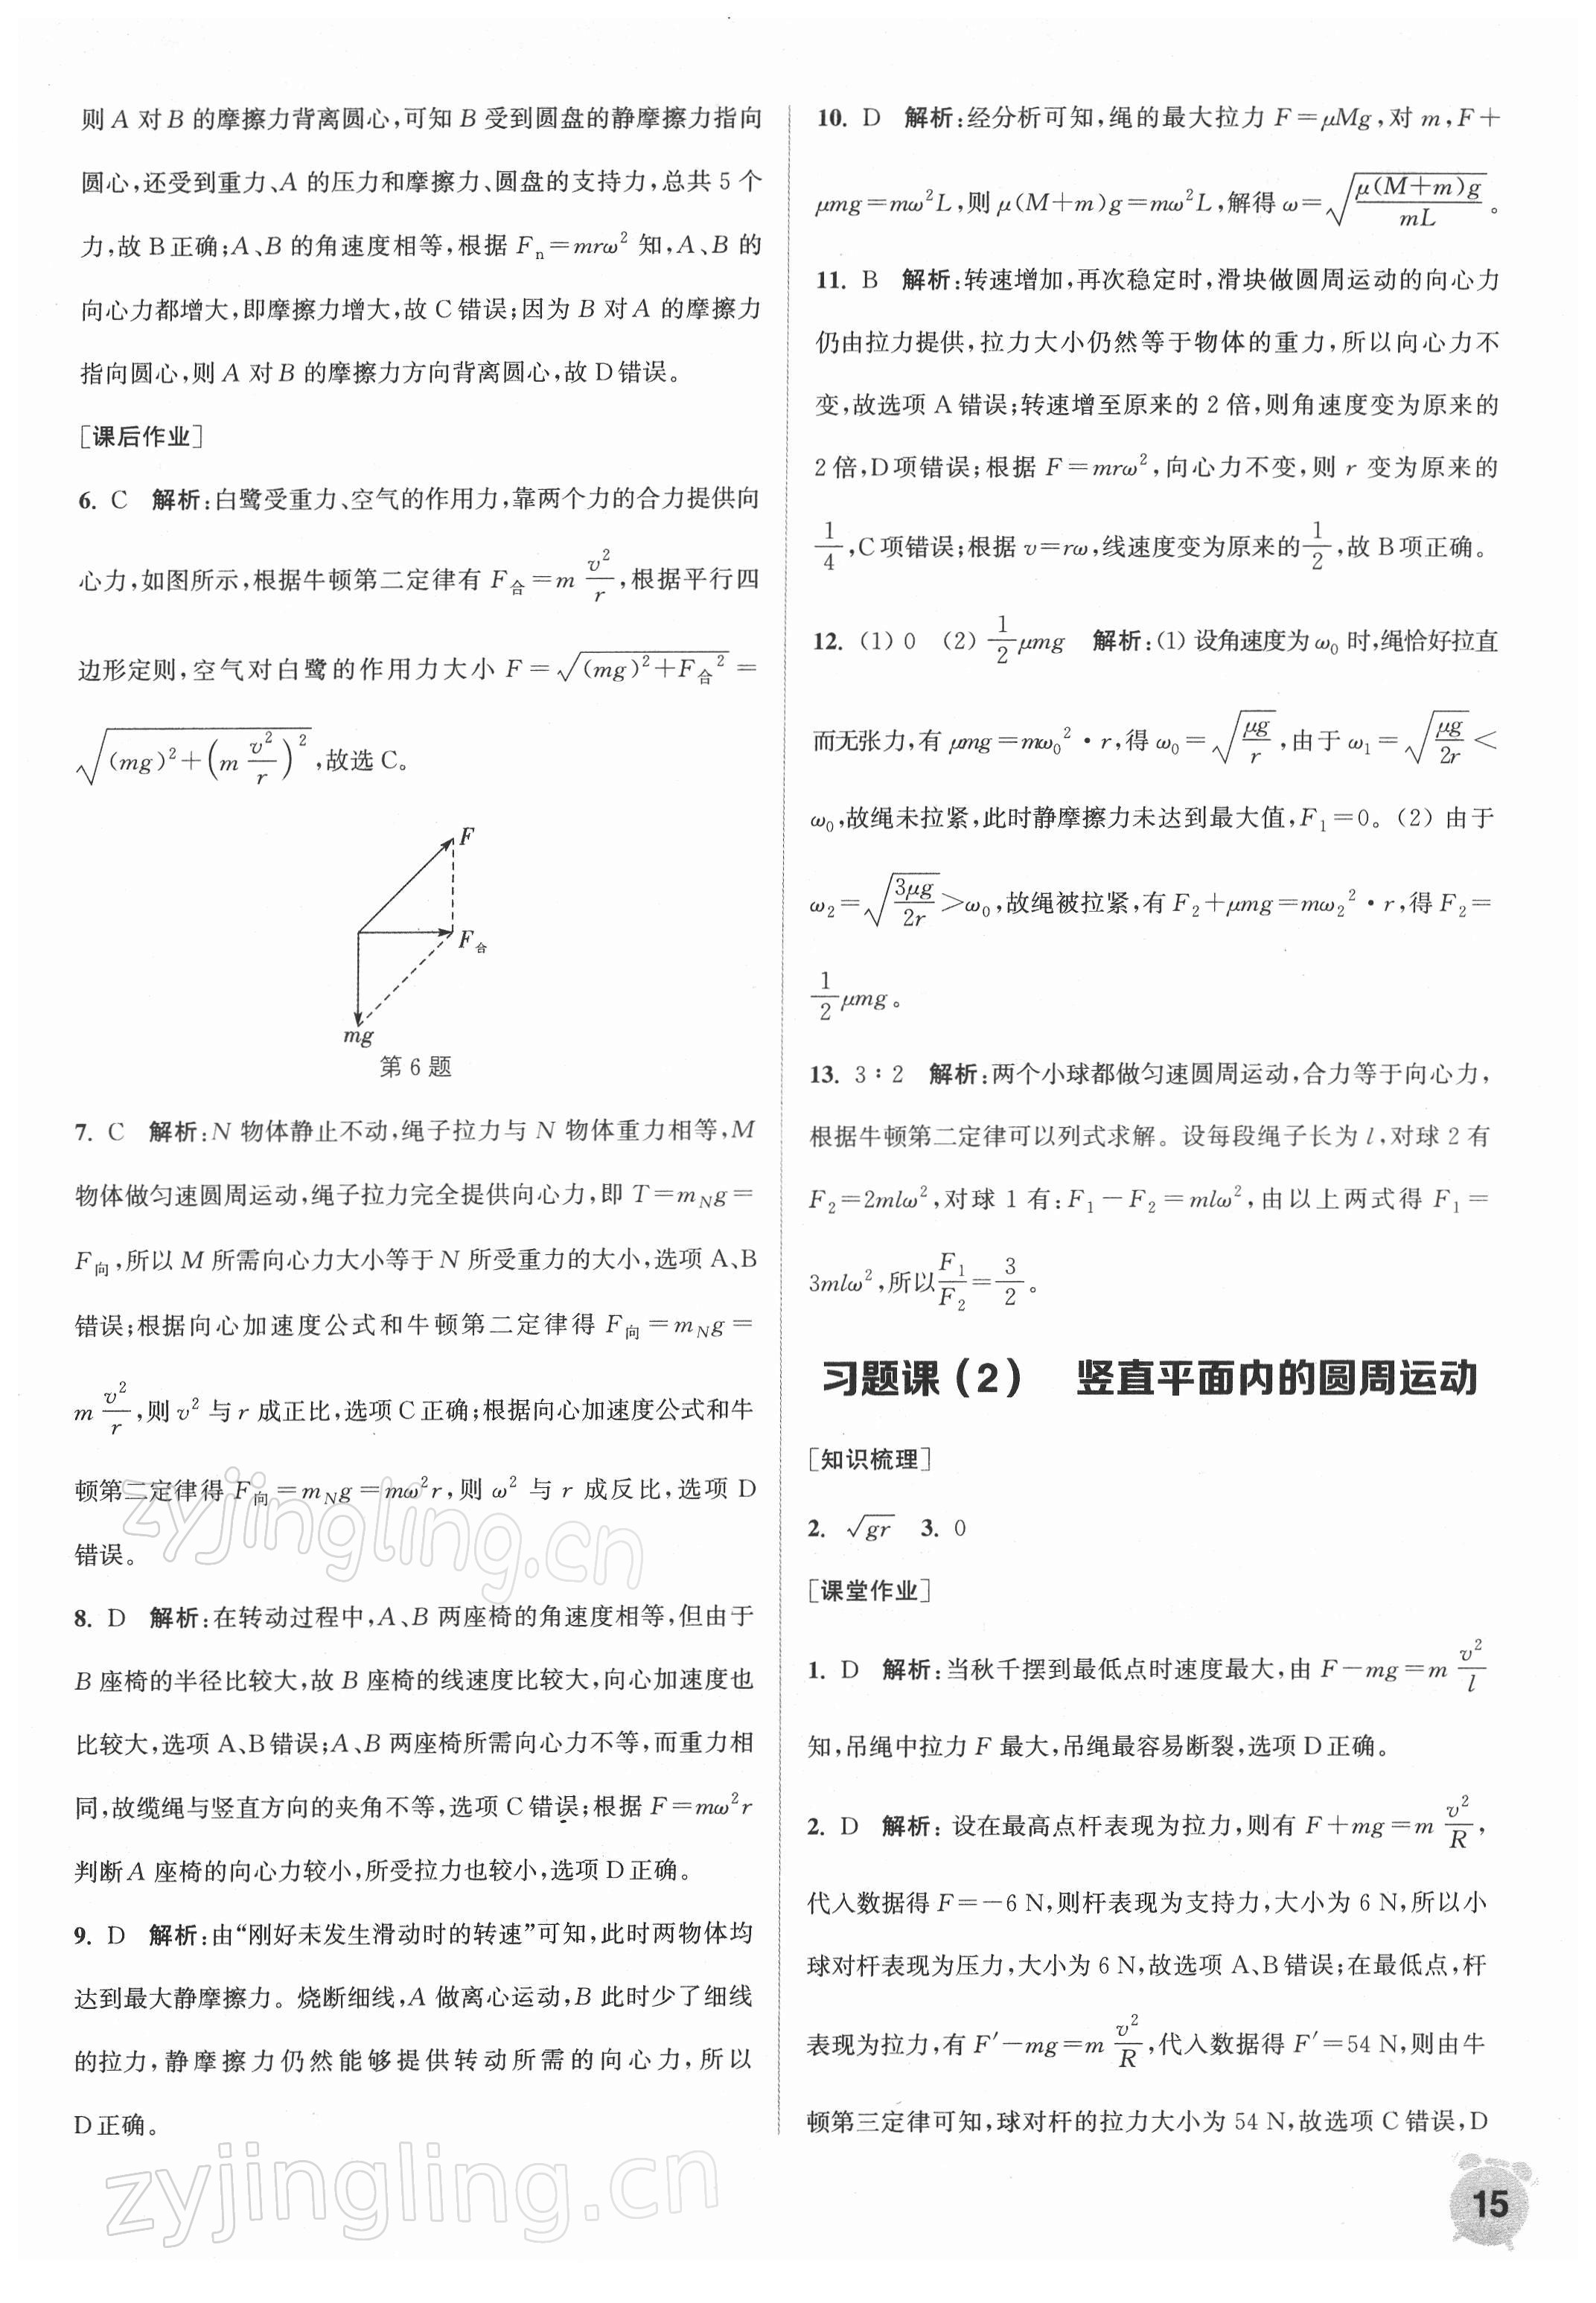 则 A 对 B 的摩擦力背离圆心,可知 B 受到圆盘的静摩擦力指向
圆心,还受到重力、A 的压力和摩擦力、圆盘的支持力,总共 5 个
力,故 B 正确;A、B 的角速度相等,根据 Fₙ=mrω² 知,A、B 的
向心力都增大,即摩擦力增大,故 C 错误;因为 B 对 A 的摩擦力
指向圆心,则 A 对 B 的摩擦力方向背离圆心,故 D 错误。
[课后作业]
6. C 解析:白鹭受重力、空气的作用力,靠两个力的合力提供向
心力,如图所示,根据牛顿第二定律有 F合=m v²/r,根据平行四
边形定则,空气对白鹭的作用力大小 F=√((mg)²+F合²)=
√((mg)²+(m v²/r)²),故选 C。
F
F合
mg
第 6 题
7. C 解析:N 物体静止不动,绳子拉力与 N 物体重力相等,M
物体做匀速圆周运动,绳子拉力完全提供向心力,即 T=m_N g=
F向,所以 M 所需向心力大小等于 N 所受重力的大小,选项 A、B
错误;根据向心加速度公式和牛顿第二定律得 F向=m_N g=
m v²/r,则 v² 与 r 成正比,选项 C 正确;根据向心加速度公式和牛
顿第二定律得 F向=m_N g=mω²r,则 ω² 与 r 成反比,选项 D
错误。
8. D 解析:在转动过程中,A、B 两座椅的角速度相等,但由于
B 座椅的半径比较大,故 B 座椅的线速度比较大,向心加速度也
比较大,选项 A、B 错误;A、B 两座椅所需向心力不等,而重力相
同,故缆绳与竖直方向的夹角不等,选项 C 错误;根据 F=mω²r
判断 A 座椅的向心力较小,所受拉力也较小,选项 D 正确。
9. D 解析:由“刚好未发生滑动时的转速”可知,此时两物体均
达到最大静摩擦力。烧断细线,A 做离心运动,B 此时少了细线
的拉力,静摩擦力仍然能够提供转动所需的向心力,所以
D 正确。
10. D 解析:经分析可知,绳的最大拉力 F=μMg,对 m,F+
μmg=mω²L,则 μ(M+m)g=mω²L,解得 ω=√(μ(M+m)g/mL)。
11. B 解析:转速增加,再次稳定时,滑块做圆周运动的向心力
仍由拉力提供,拉力大小仍然等于物体的重力,所以向心力不
变,故选项 A 错误;转速增至原来的 2 倍,则角速度变为原来的
2 倍,D 项错误;根据 F=mrω²,向心力不变,则 r 变为原来的
1/4,C 项错误;根据 v=rω,线速度变为原来的 1/2,故 B 项正确。
12. (1) 0 (2) 1/2 μmg 解析:(1) 设角速度为 ω₀ 时,绳恰好拉直
而无张力,有 μmg=mω₀²·r,得 ω₀=√(μg/r),由于 ω₁=√(μg/2r)<
ω₀,故绳未拉紧,此时静摩擦力未达到最大值,F₁=0。(2) 由于
ω₂=√(3μg/2r)>ω₀,故绳被拉紧,有 F₂+μmg=mω₂²·r,得 F₂=
1/2 μmg。
13. 3∶2 解析:两个小球都做匀速圆周运动,合力等于向心力,
根据牛顿第二定律可以列式求解。设每段绳子长为 l,对球 2 有
F₂=2mlω²,对球 1 有:F₁-F₂=mlω²,由以上两式得 F₁=
3mlω²,所以 F₁/F₂=3/2。
习题课(2) 竖直平面内的圆周运动
[知识梳理]
2. √gr 3. 0
[课堂作业]
1. D 解析:当秋千摆到最低点时速度最大,由 F-mg=m v²/l
知,吊绳中拉力 F 最大,吊绳最容易断裂,选项 D 正确。
2. D 解析:设在最高点杆表现为拉力,则有 F+mg=m v²/R,
代入数据得 F=-6 N,则杆表现为支持力,大小为 6 N,所以小
球对杆表现为压力,大小为 6 N,故选项 A、B 错误;在最低点,杆
表现为拉力,有 F′-mg=m v²/R,代入数据得 F′=54 N,则由牛
顿第三定律可知,球对杆的拉力大小为 54 N,故选项 C 错误,D
15
zyjingling.cn
zyjingling.cn